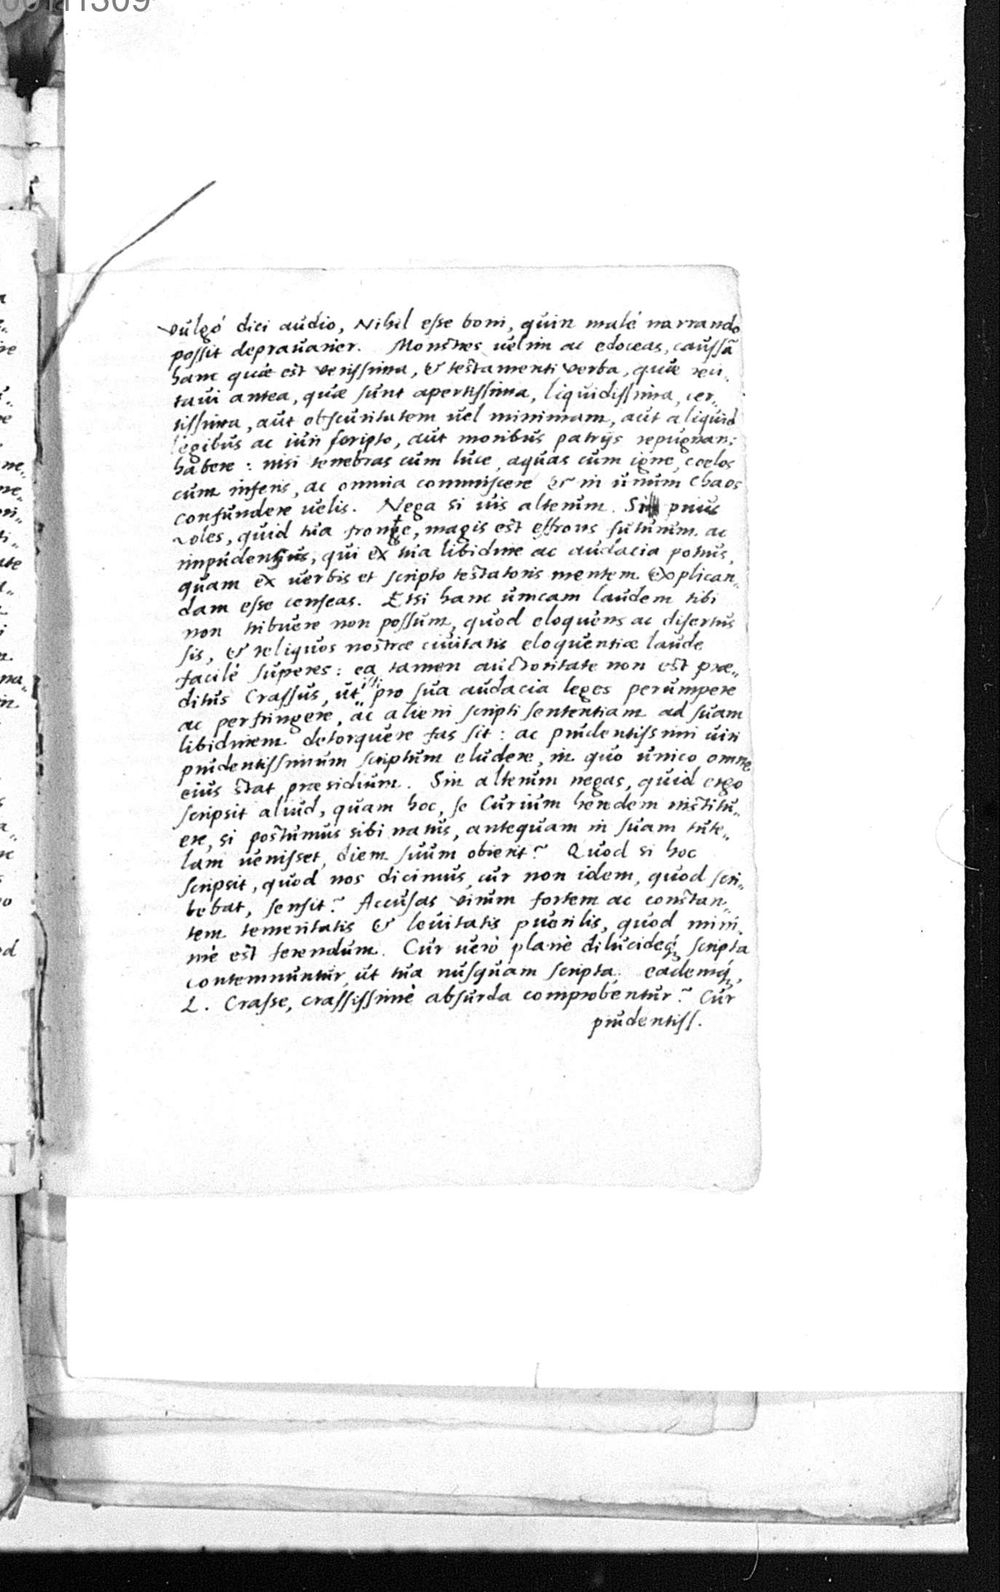 vulgó dici audio, Nihil esse boni, quin malè narrando
possit deprauarier. Monstres uelim ac edoceas, caussã
hanc quæ est verissima, & testamenti verba, quæ reci„
taui antea, quæ sunt apertissima, liquidissima, cer„
tissima, aut obscuritatem uel minimam, aut aliquid
legibus ac iuri scripto, aut moribus patrijs repugnans
habere: nisi tenebras cum luce, aquas cum igne, coelos
cum inferis, ac omnia commiscere & in unum Chaos
confundere uelis. Nega si uis alterum. Sin prius
uoles, quid tua fronte, magis est effrons futurum ac
impudentius, qui ex tua libidine ac audacia potius,
quam ex uerbis et scripto testatoris mentem explican„
dam esse censeas. Etsi hanc unicam laudem tibi
non tribuere non possum, quod eloquens ac disertus
sis, & reliquos nostræ ciuitatis eloquentiæ laude
facilè superes: ea tamen auctoritate non est præ„
ditus Crassus, ut pro sua audacia leges perumpere
ac perfringere, ac alieni scripti sententiam ad suam
libidinem detorquere fas sit: ac prudentissimi uiri
prudentissimum scriptum eludere, in quo unico omne
eius stat præsidium. Sin alterum negas, quid ergo
scripsit aliud, quam hoc, se Curium heredem institu„
ere, si postumus sibi natus, antequam in suam tute„
lam uenisset, diem suum obierit? Quod si hoc
scripsit, quod nos dicimus, cur non idem, quod scri„
bebat, sensit? Accusas virum fortem ac constan„
tem temeritatis & leuitatis puerilis, quod mini„
mè est ferendum. Cur uerò planè dilucideq́ scripta
contemnuntur, ut tua nusquam scripta, eademq́,
L. Crasse, crassissimè absurda comprobentur? Cur
prudentiss.